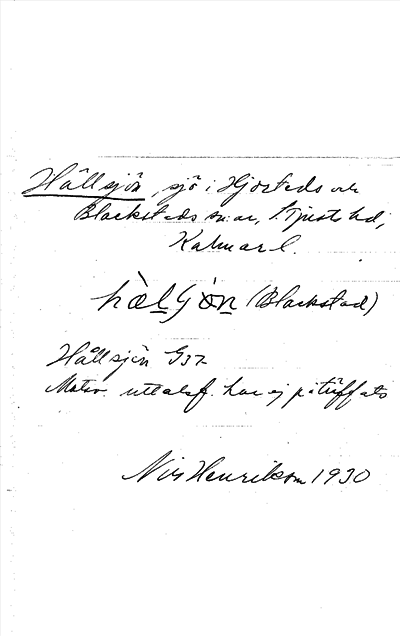 Hållsjön, sjö i Hjorteds och
Blackstads sn:ar, S Tjusts hd,
Kalmar l.
hæ̀lʃön (Blackstad)
Hållsjön G32
Motsv. uttalsf. har ej påträffats
Nils Henrikson 1930